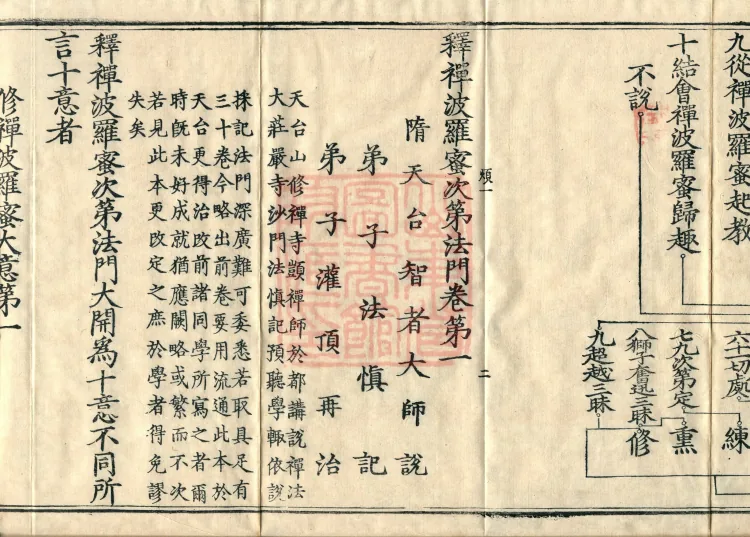 九從禪波羅蜜起教
十結會禪波羅蜜歸趣
不說
六十切處
練
七九次第定
熏
八獅子奮迅三昧
修
九超越三昧
顛一
二
釋禪波羅蜜次第法門卷第一
隋天台智者大師說
弟子法慎記
弟子灌頂再治
天台山修禪寺顗禪師於都講說禪法
大莊嚴寺沙門法慎記預聽學輙依說
採記法門深廣難可委悉若取具足有
三十卷今略出前卷要用流通此本於
天台更得治改前諸同學所寫之者爾
時旣未好成就猶應闕略或繁而不次
若見此本更改定之庶於學者得免謬
失矣
釋禪波羅蜜次第法門大開為十意不同所
言十意者
修禪波羅蜜大意第一